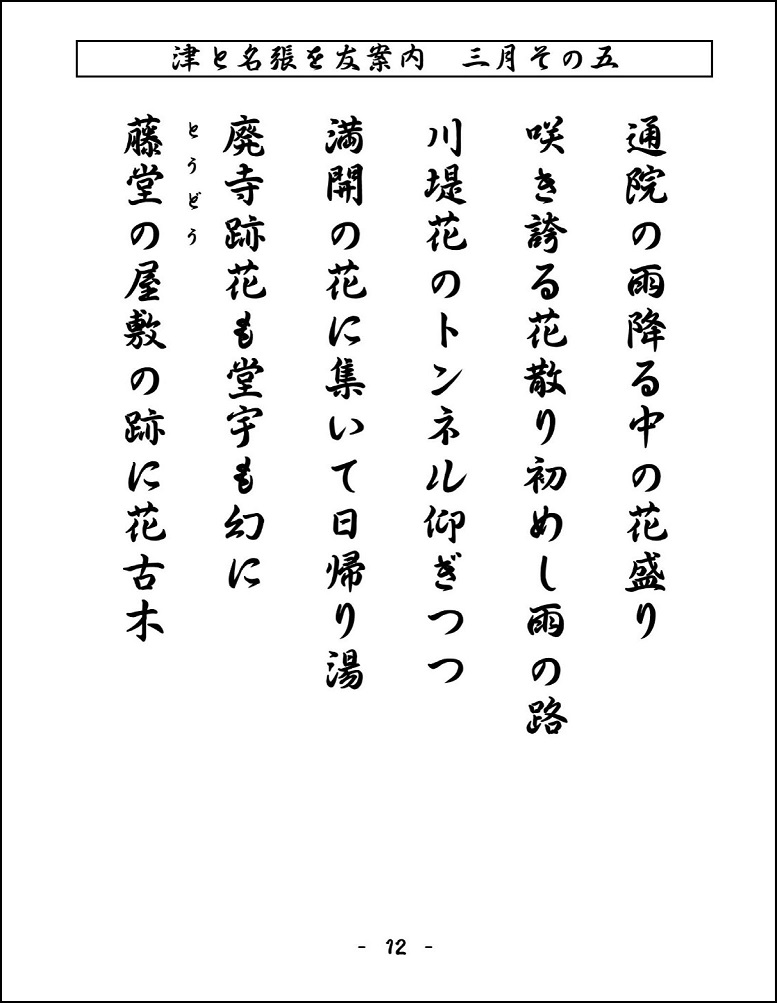 津と名張を友案内　三月その五
通院の雨降る中の花盛り
咲き誇る花散り初めし雨の路
川堤花のトンネル仰ぎつつ
満開の花に集いて日帰り湯
廃寺跡花も堂宇も幻に
とうどう
藤堂の屋敷の跡に花古木
- 12 -